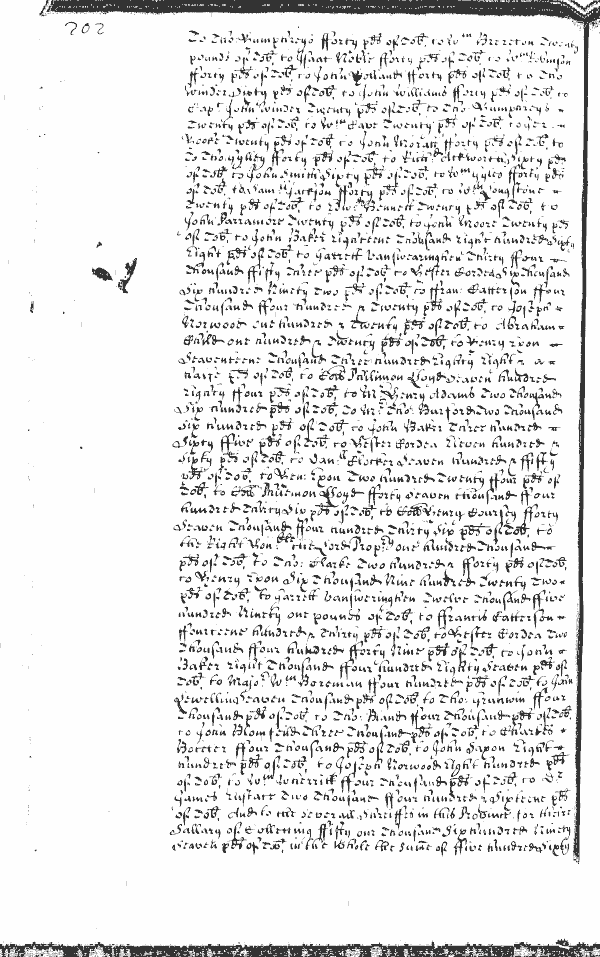 202
To Tho: Humphreys fforty pds of Tob, to Wm Brereton Twenty
pounds of Tob, to Isaac Noble fforty pds of Tob, to Wm Robinson
fforty pds of Tob, to John Holland fforty pds of Tob, to Tho
Winder Sixty pds of Tob, to John Williams fforty pds of Tob, to
Capt John Winder Twenty pds of Tob, to Tho: Humphreys
Twenty pds of Tob, to Wm Cave Twenty pds of Tob, to
Twenty pds of Tob, to John fforty pds of Tob, to
To Tho: fforty pds of Tob, to Richd Ackworth Sixty pds
of Tob, to John Smith Sixty pds of Tob, to Wm Giles fforty pds
of Tob, to Jackson fforty pds of Tob, to Wm
Twenty pds of Tob, to Edwd Bennett Twenty pds of Tob, to
John Parramore Twenty pds of Tob, to John Moore Twenty pds
of Tob, to John Baker Eighteene Thousand Eight hundred Sixty
Eight pds of Tob, to Garrett Vansweringhen Thirty ffour
Thousand ffifty Three pds of Tob, to Hester Cordea Six Thousand
Six hundred Ninety Two pds of Tob, to ffran: Catterson ffour
Thousand ffour hundred & Twenty pds of Tob, to Joseph
Norwood one hundred & Twenty pds of Tob, to Abraham
Child one hundred & Twenty pds of Tob, to Henry Exon
Seaventeene Thousand Three hundred Eighty Eight & a
halfe pds of Tob, to Coll Phillimon Lloyd Seaven hundred
Eighty ffour pds of Tob, to Mr Henry Adams Two Thousand
Six hundred pds of Tob, To Mr Tho: Burford Two Thousand
Six hundred pds of Tob, to John Baker Three hundred
Sixty ffive pds of Tob, to Hester Cordea Eleven hundred &
Sixty pds of Tob, to Danll Clocker Seaven hundred & ffifty
pds of Tob, to Hen: Exon Two hundred Twenty ffour pds of
Tob, to Coll Philemon Lloyd fforty Seaven thousand ffour
hundred Thirty Six pds of Tob, to Coll Henry Coursey fforty
Seaven Thousand ffour hundred Thirty Six pds of Tob, to
the Right Honble the Lord Propry one hundred Thousand
pds of Tob, to Tho: Clarke Two hundred & fforty pds of Tob,
to Henry Exon Six Thousand Nine hundred Twenty Two
pds of Tob, to Garrett Vansweringhen Twelve Thousand ffive
hundred Ninety one pounds of Tob, to ffrancis Catterson
ffourteene hundred & Thirty pds of Tob, to Hester Cordea Two
Thousand ffour hundred fforty Nine pds of Tob, to John
Baker Eight Thousand ffour hundred Eighty Seaven pds of
Tob, to Major Wm Boreman ffour hundred pds of Tob, to John
Lewellin Seaven Thousand pds of Tob, to Tho: Grunwin ffour
Thousand pds of Tob, to Tho: Bland ffour Thousand pds of Tob,
to John Blomfeild Three Thousand pds of Tob, to Charles
Boteler ffour Thousand pds of Tob, to John Eight
hundred pds of Tob, to Joseph Norwood Eight hundred pds
of Tob, to Wm Wherritt ffour Thousand pds of Tob, to
James Two Thousand ffour hundred & Sixteene pds
of Tob, And to the severall Sheriffes in this Province for their
Sallary of Collecting ffifty one Thousand Six hundred Ninety
Seaven pds of Tob, in the Whole the Sume of ffive hundred Sixty